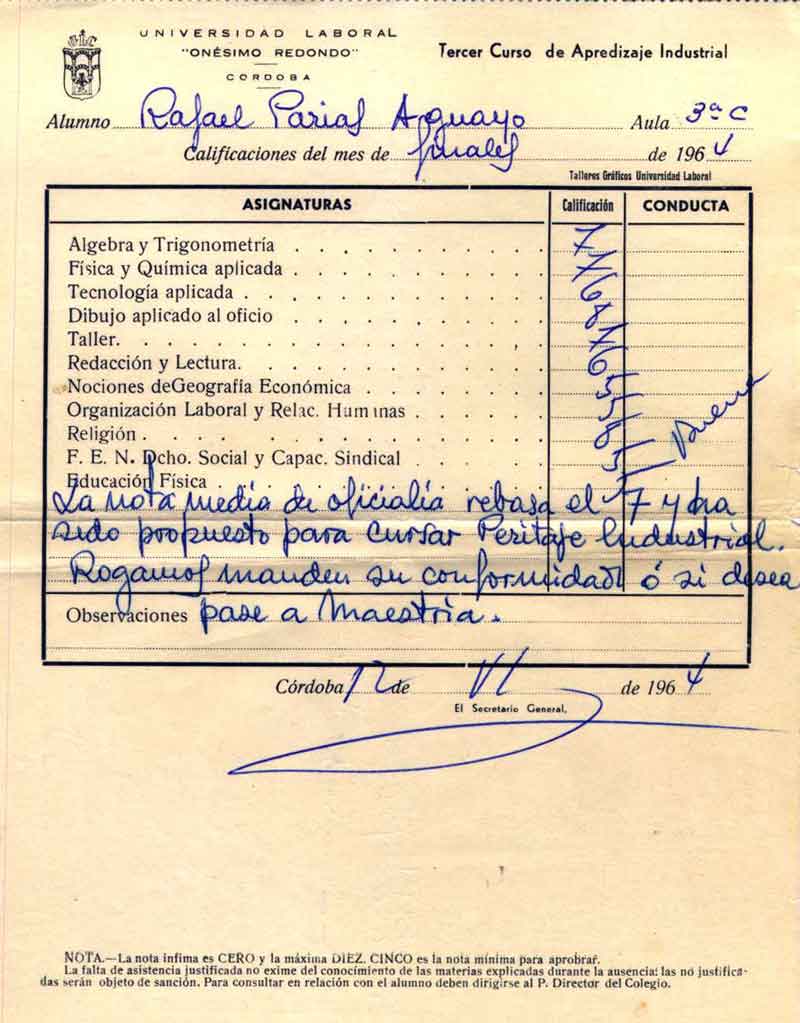 UNIVERSIDAD LABORAL
"ONÉSIMO REDONDO"
CORDOBA
Tercer Curso de Apredizaje Industrial
Alumno Rafael Parias Aguayo Aula 3ª C
Calificaciones del mes de finales de 1964
Talleres Gráficos Universidad Laboral
ASIGNATURAS Calificación CONDUCTA
Algebra y Trigonometría 7
Física y Química aplicada 7
Tecnología aplicada 6
Dibujo aplicado al oficio 8
Taller. 7
Redacción y Lectura. 6
Nociones deGeografía Económica 5
Organización Laboral y Relac. Humanas 5
Religión 8 Buena
F. E. N. Dcho. Social y Capac. Sindical 5
Educación Física
La nota media de oficialía rebasa el 7 y ha
sido propuesto para cursar Peritaje Industrial.
Rogamos manden su conformidad ó si desea
Observaciones pase a Maestria.
Córdoba 12 de VI de 1964
El Secretario General,
NOTA.—La nota ínfima es CERO y la máxima DIEZ. CINCO es la nota mínima para aprobar.
La falta de asistencia justificada no exime del conocimiento de las materias explicadas durante la ausencia: las no justifica-
das serán objeto de sanción. Para consultar en relación con el alumno deben dirigirse al P. Director del Colegio.